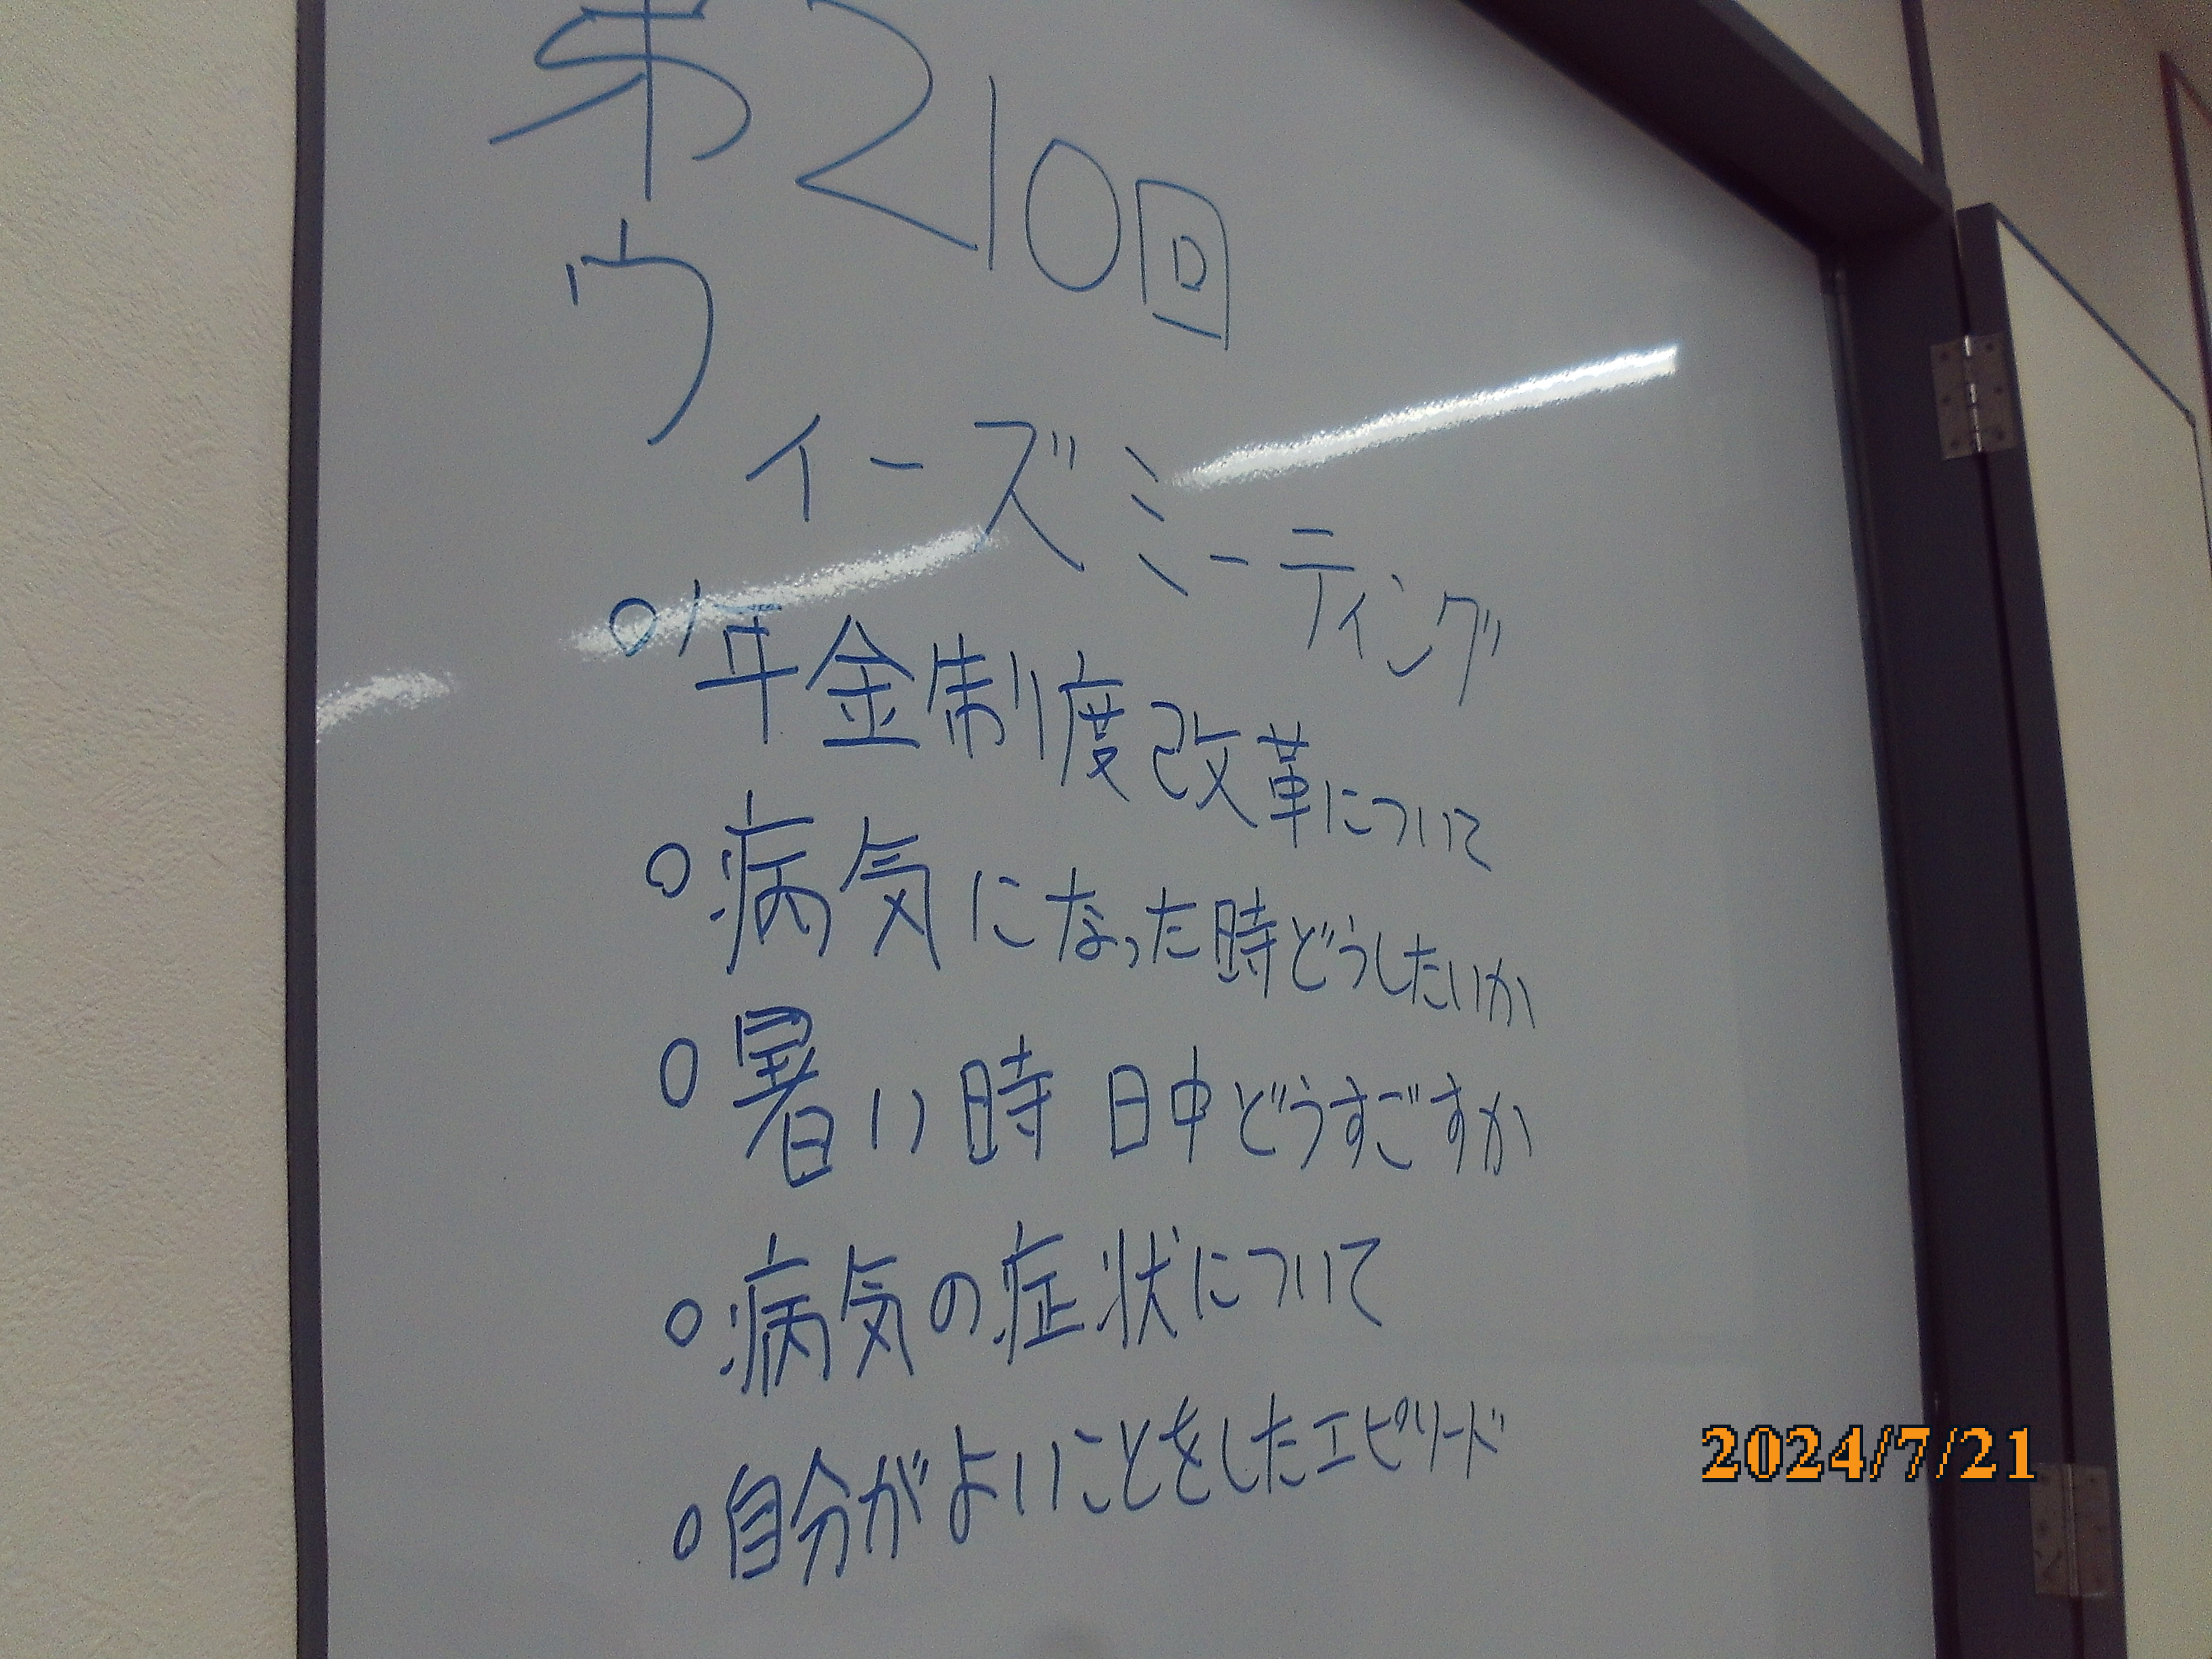 第210回
ウィーズミーティング
○年金制度改革について
○病気になった時どうしたいか
○暑い時 日中どうすごすか
○病気の症状について
○自分がよいことをしたエピソード
2024/7/21